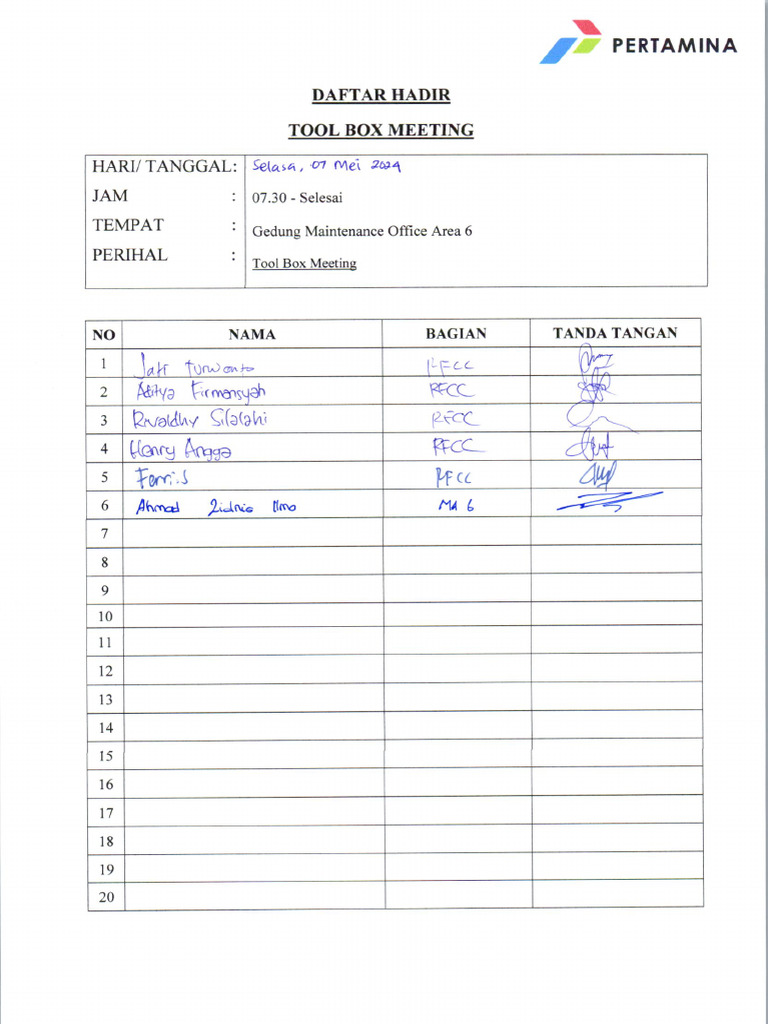 PERTAMINA
DAFTAR HADIR
TOOL BOX MEETING
HARI/ TANGGAL: Selasa, 07 Mei 2024
JAM : 07.30 - Selesai
TEMPAT : Gedung Maintenance Office Area 6
PERIHAL : Tool Box Meeting
NO NAMA BAGIAN TANDA TANGAN
1 Jati Purwanto RFCC
2 Aditya Firmansyah RFCC
3 Rivaldhy Silalahi RFCC
4 Henry Angga RFCC
5 Ferri.S RFCC
6 Ahmad Zidnie Ilma MA 6
7
8
9
10
11
12
13
14
15
16
17
18
19
20